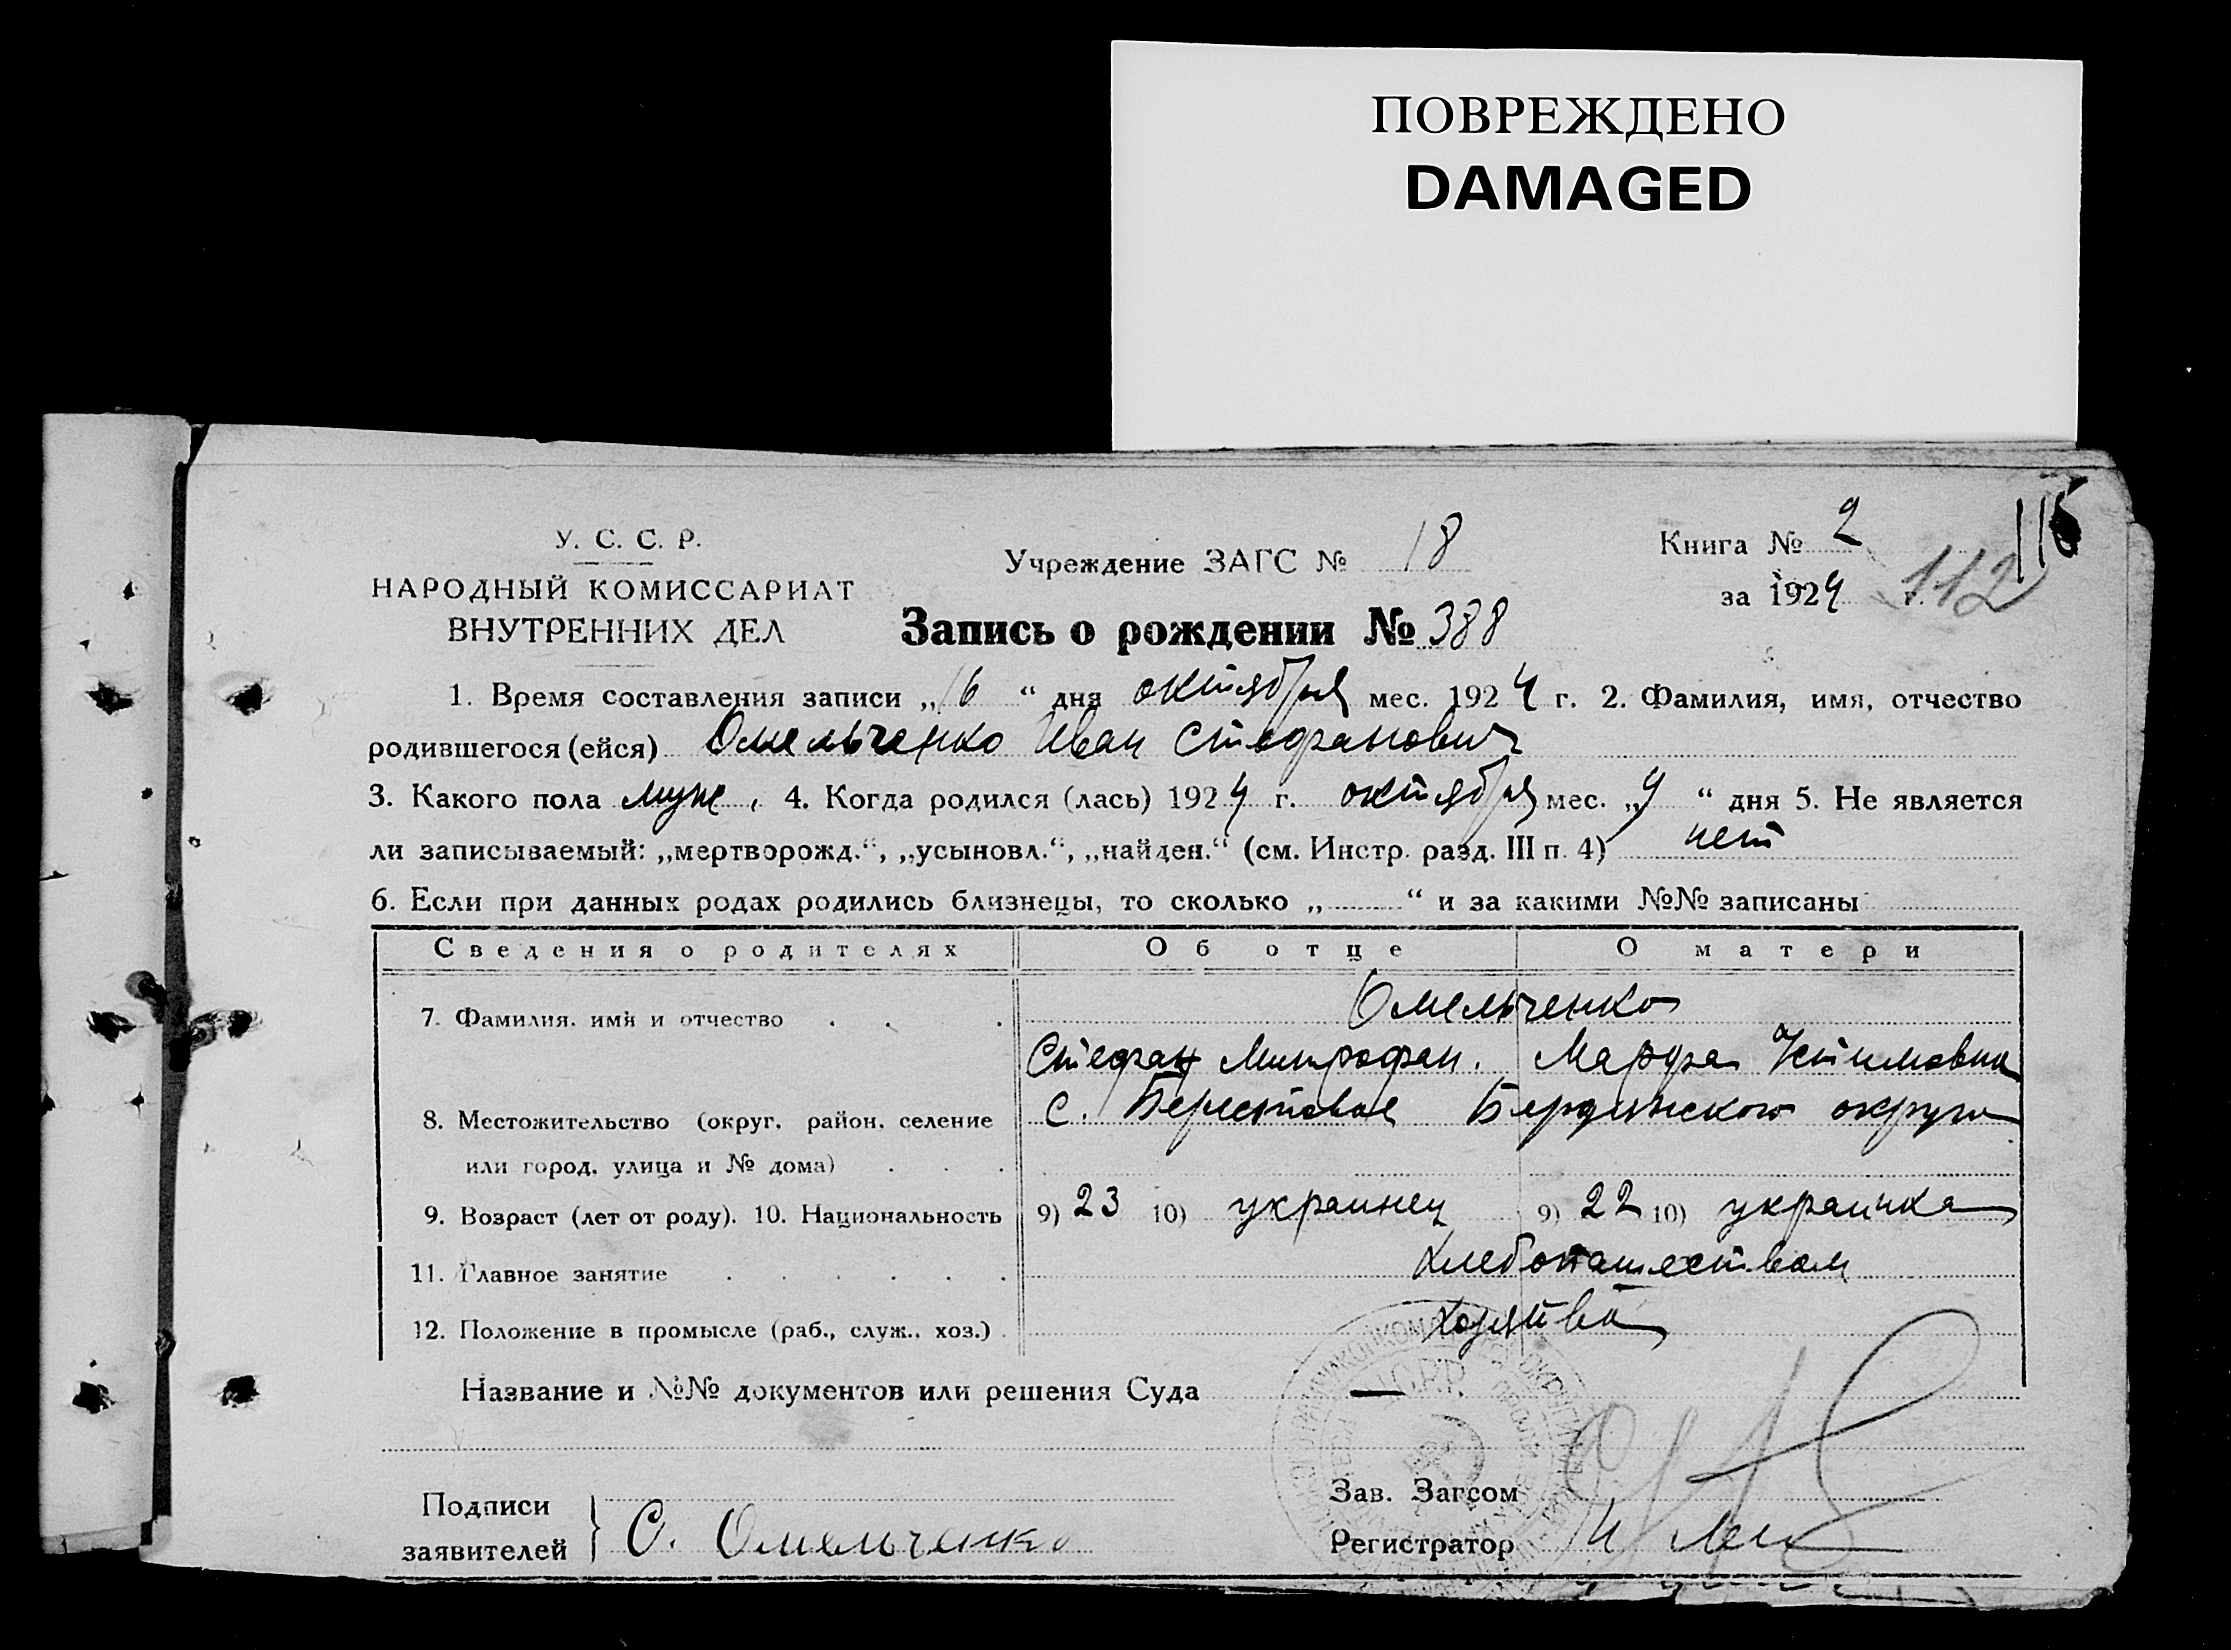 ПОВРЕЖДЕНО
DAMAGED
У. С. С. Р.
НАРОДНЫЙ КОМИССАРИАТ
ВНУТРЕННИХ ДЕЛ
Учреждение ЗАГС № 18
Книга № 2
за 1924 г.
115
112
Запись о рождении № 388
1. Время составления записи „16“ дня октября мес. 1924 г. 2. Фамилия, имя, отчество
родившегося (ейся) Омельченко Иван Стефанович
3. Какого пола муж, 4. Когда родился (лась) 1924 г. октября мес. „9“ дня 5. Не является
ли записываемый: „мертворожд.“, „усыновл.“, „найден.“ (см. Инстр. разд. III п. 4) нет
6. Если при данных родах родились близнецы, то сколько „ “ и за какими №№ записаны
Сведения о родителях Об отце О матери
7. Фамилия, имя и отчество Омельченко
Стефан Митрофан. Марфа Устимовна
8. Местожительство (округ, район, селение с. Берестовое Бердянского округа
или город, улица и № дома)
9. Возраст (лет от роду). 10. Национальность 9) 23 10) украинец 9) 22 10) украинка
11. Главное занятие хлебопашеством
12. Положение в промысле (раб., служ., хоз.)
Название и №№ документов или решения Суда —
Подписи
заявителей } С. Омельченко
Зав. Загсом
Регистратор